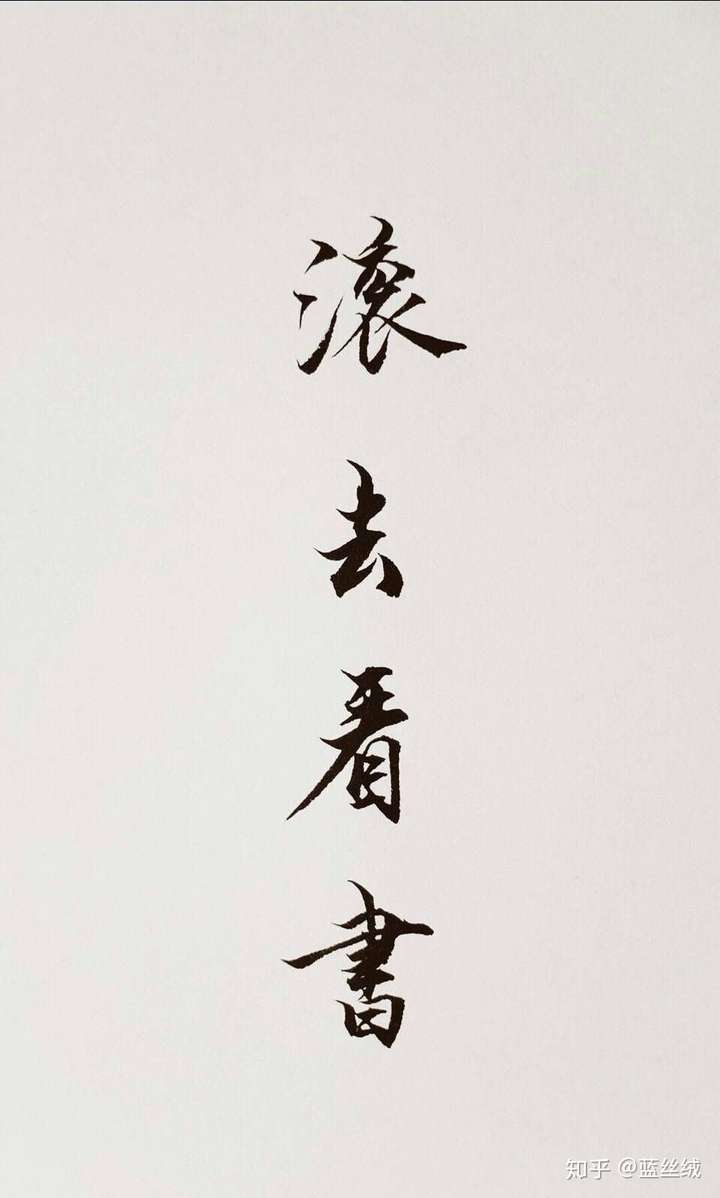 滚去看書
知乎 @蓝丝绒